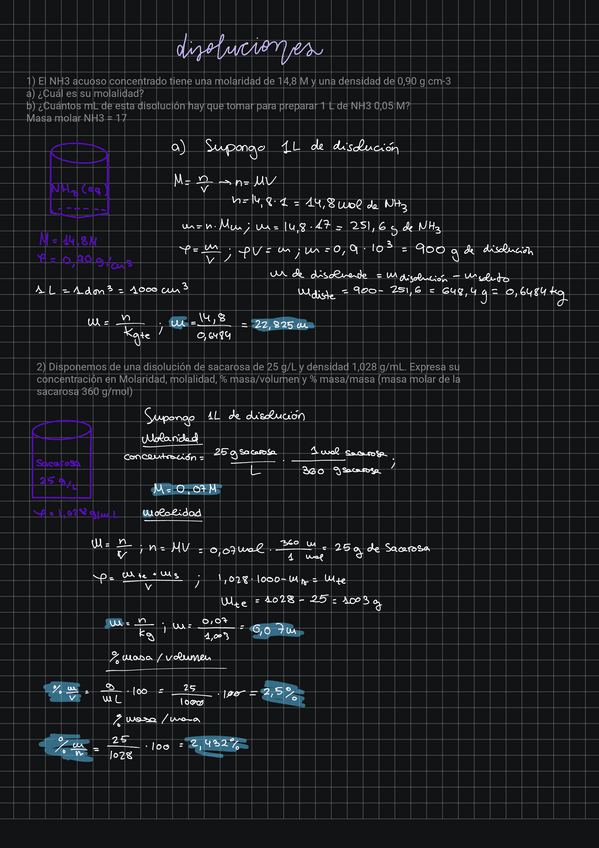 disoluciones
1) El NH3 acuoso concentrado tiene una molaridad de 14,8 M y una densidad de 0,90 g cm-3
a) ¿Cuál es su molalidad?
b) ¿Cuántos mL de esta disolución hay que tomar para preparar 1 L de NH3 0,05 M?
Masa molar NH3 = 17
a) Supongo 1L de disolución
NH3 (aq)
M = n/V → n = MV
n = 14,8 · 1 = 14,8 mol de NH3
m = n · Mm ; m = 14,8 · 17 = 251,6 g de NH3
M = 14,8M
ρ = 0,90 g/cm3
ρ = m/V ; ρV = m ; m = 0,9 · 10^3 = 900 g de disolución
m de disolvente = m disolución − m soluto
1L = 1dm3 = 1000 cm3
m diste = 900 - 251,6 = 648,4 g = 0,6484 kg
m = n/Kgte ; m = 14,8/0,6484 = 22,825 m
2) Disponemos de una disolución de sacarosa de 25 g/L y densidad 1,028 g/mL. Expresa su
concentración en Molaridad, molalidad, % masa/volumen y % masa/masa (masa molar de la
sacarosa 360 g/mol)
Supongo 1L de disolución
Molaridad
concentración = 25 g sacarosa/L · 1 mol sacarosa/360 g sacarosa ;
Sacarosa
25 g/L
M = 0,07M
ρ = 1,028 g/mL
molalidad
M = n/V ; n = MV = 0,07 mol · 360 m/1 mol = 25 g de Sacarosa
ρ = mte + ms/V ; 1,028 · 1000 - ms = mte
mte = 1028 - 25 = 1003 g
m = n/kg ; m = 0,07/1,003 = 0,07 m
% masa / volumen
% m/v = g/mL · 100 = 25/1000 · 100 = 2,5%
% masa / masa
% m/m = 25/1028 · 100 = 2,432%